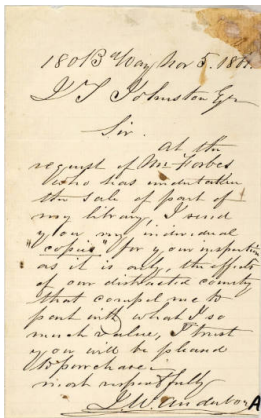 180 B way Nov 5. 186
J T Johnston Esqr
Sir.
At the
request of Mr Forbes
who has undertaken
the sale of part of
my library, I send
you my individual
"copies" for your inspection
as it is only, the effects
of our distracted country
that compel me to
part with what I so
much value, I trust
you will be pleased
to purchase.
most respectfully
J. W.
A